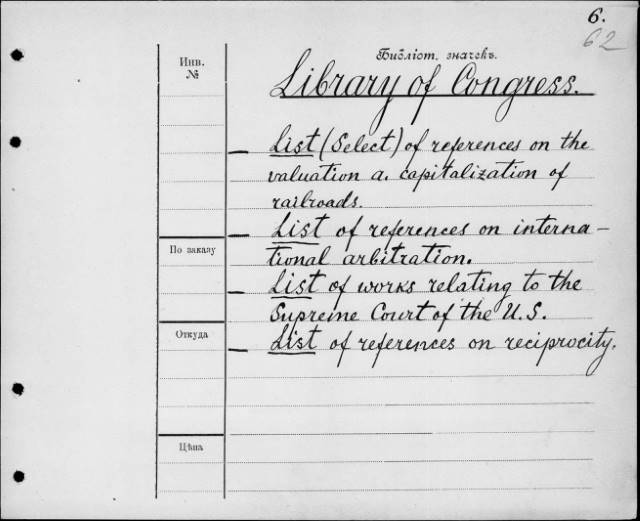 6.
62
Библіот. значекъ.
Инв.
№
Library of Congress.
— List (Select) of references on the
valuation a. capitalization of
railroads.
— List of references on interna–
tional arbitration.
По заказу
— List of works relating to the
Supreme Court of the U.S.
Откуда
— List of references on reciprocity.
Цѣна